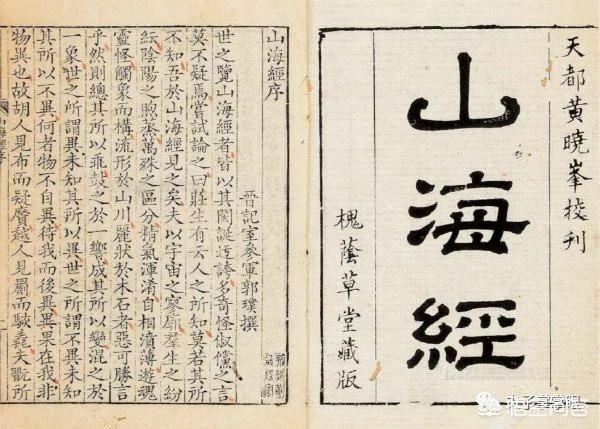 天都黄曉峯校刊
山海經
槐蔭草堂藏版
山海經序
晉記室參軍郭璞撰
世之覽山海經者皆以其閎誕迂誇多奇怪俶儻之言
莫不疑焉嘗試論之曰莊生有云人之所知莫若其所
不知吾於山海經見之矣夫以宇宙之寥廓羣生之紛
紜陰陽之煦蒸萬殊之區分精氣渾淆自相濆薄遊魂
靈怪觸象而構流形於山川麗狀於木石者惡可勝言
乎然則總其所以乖鼓之於一響成其所以變混之於
一象世之所謂異未知其所以異世之所謂不異未知
其所以不異何者物不自異待我而後異異果在我非
物異也故胡人見布而疑黂越人見罽而駭毳夫翫所
悟空问答